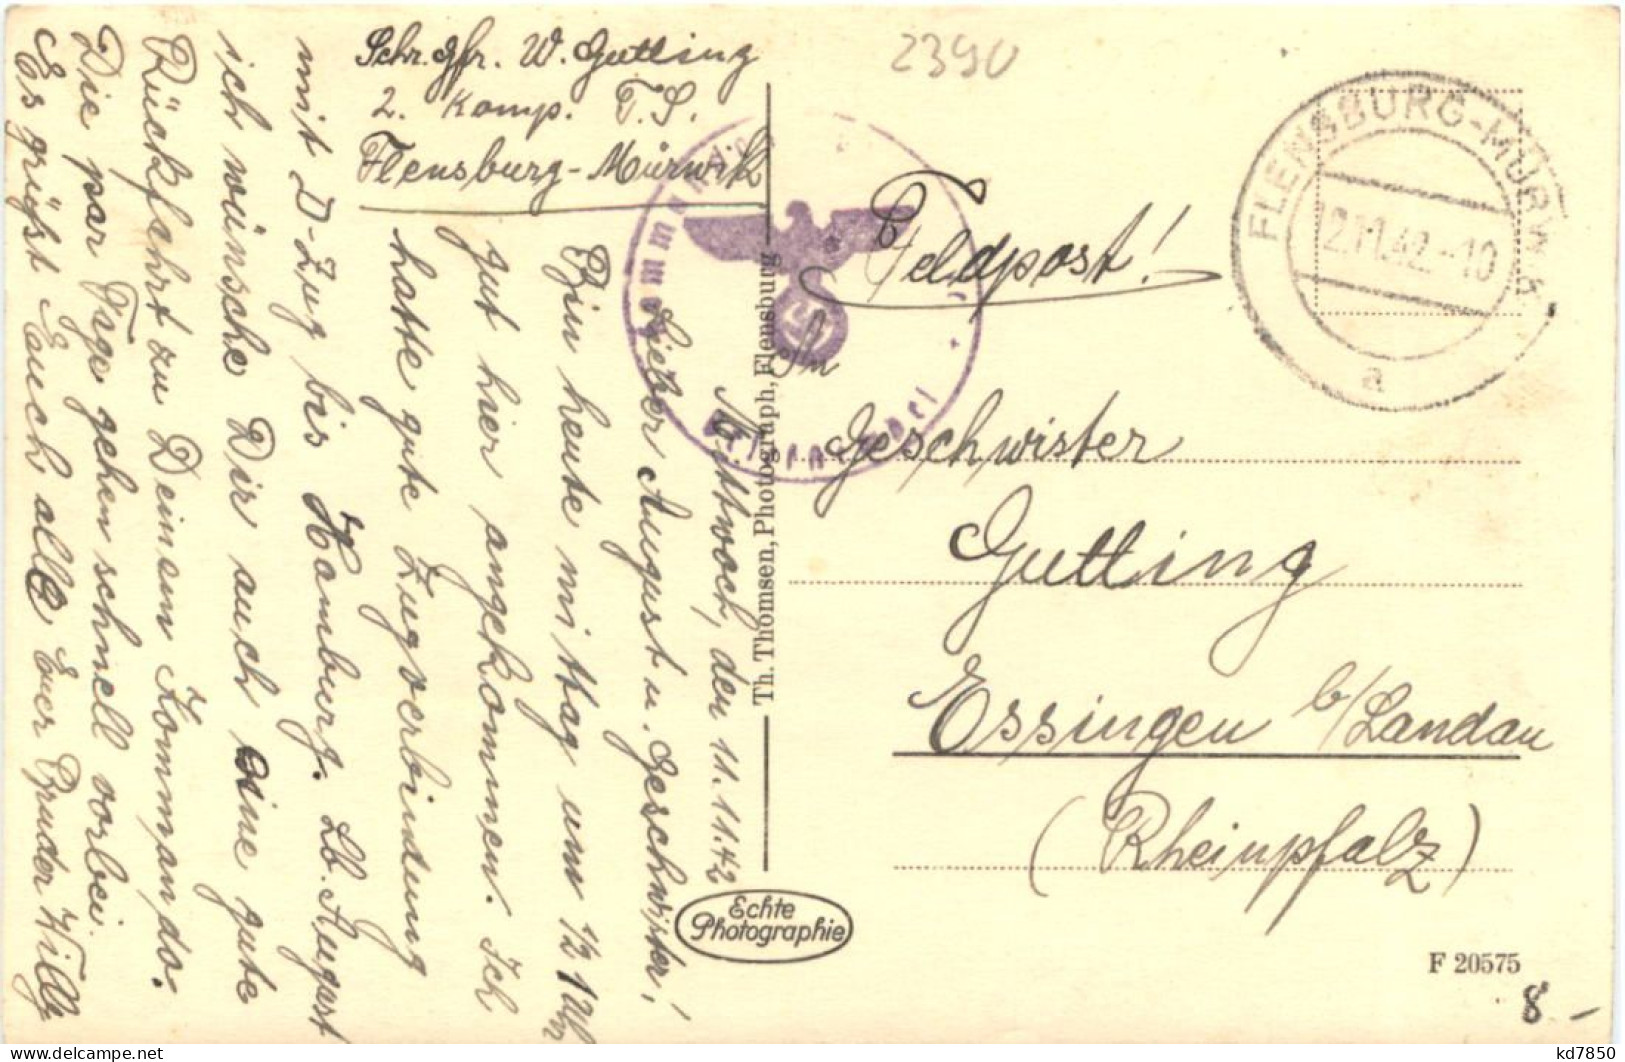 Schr. Gfr. W. Gutting
2. Komp. T.S.
Flensburg-Mürwik
Mittwoch, den 11.11.42
Lieber August u. Geschwister!
Bin heute mittag um 1/2 1 Uhr
gut hier angekommen. Ich
hatte gute Zugverbindung
mit D-Zug bis Hamburg. Lb. August
ich wünsche Dir auch eine gute
Rückfahrt zu Deinem Kommando.
Die par Tage gehen schnell vorbei.
Es grüßt Euch alle Euer Bruder Willy
Th. Thomsen, Photograph, Flensburg
Echte
Photographie
2390
FLENSBURG-MÜRWIK
12.11.42.-10
a
Feldpost!
An
Geschwister
Gutting
Essingen b/Landau
(Rheinpfalz)
F 20575
8 -
delcampe.net
kd7850